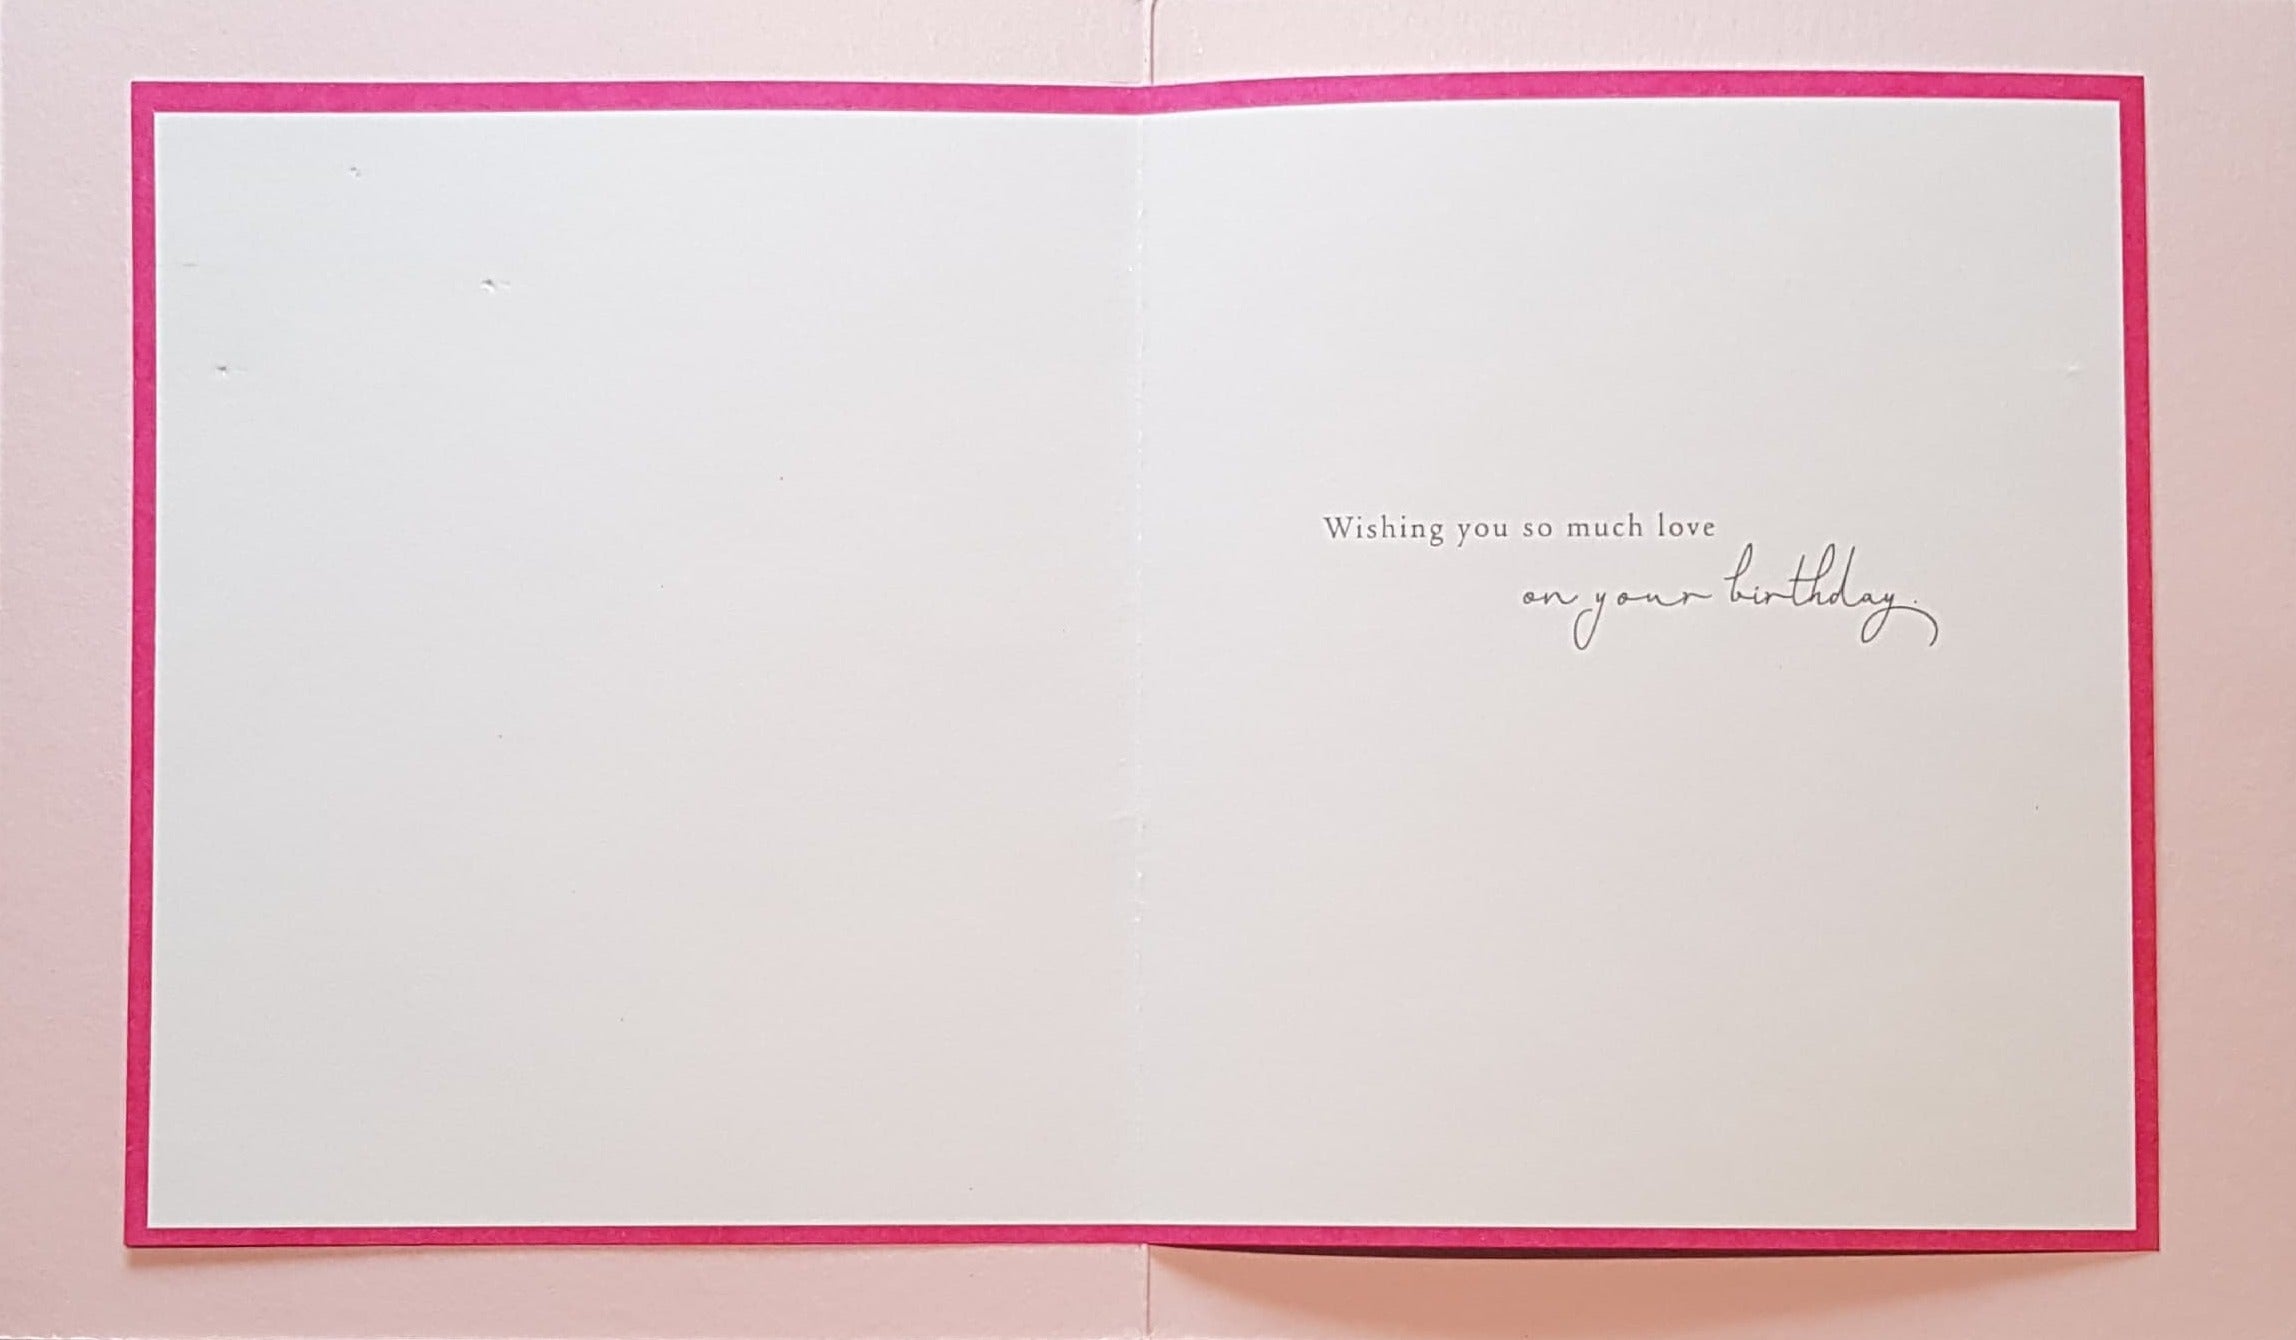 Wishing you so much love
on your birthday.